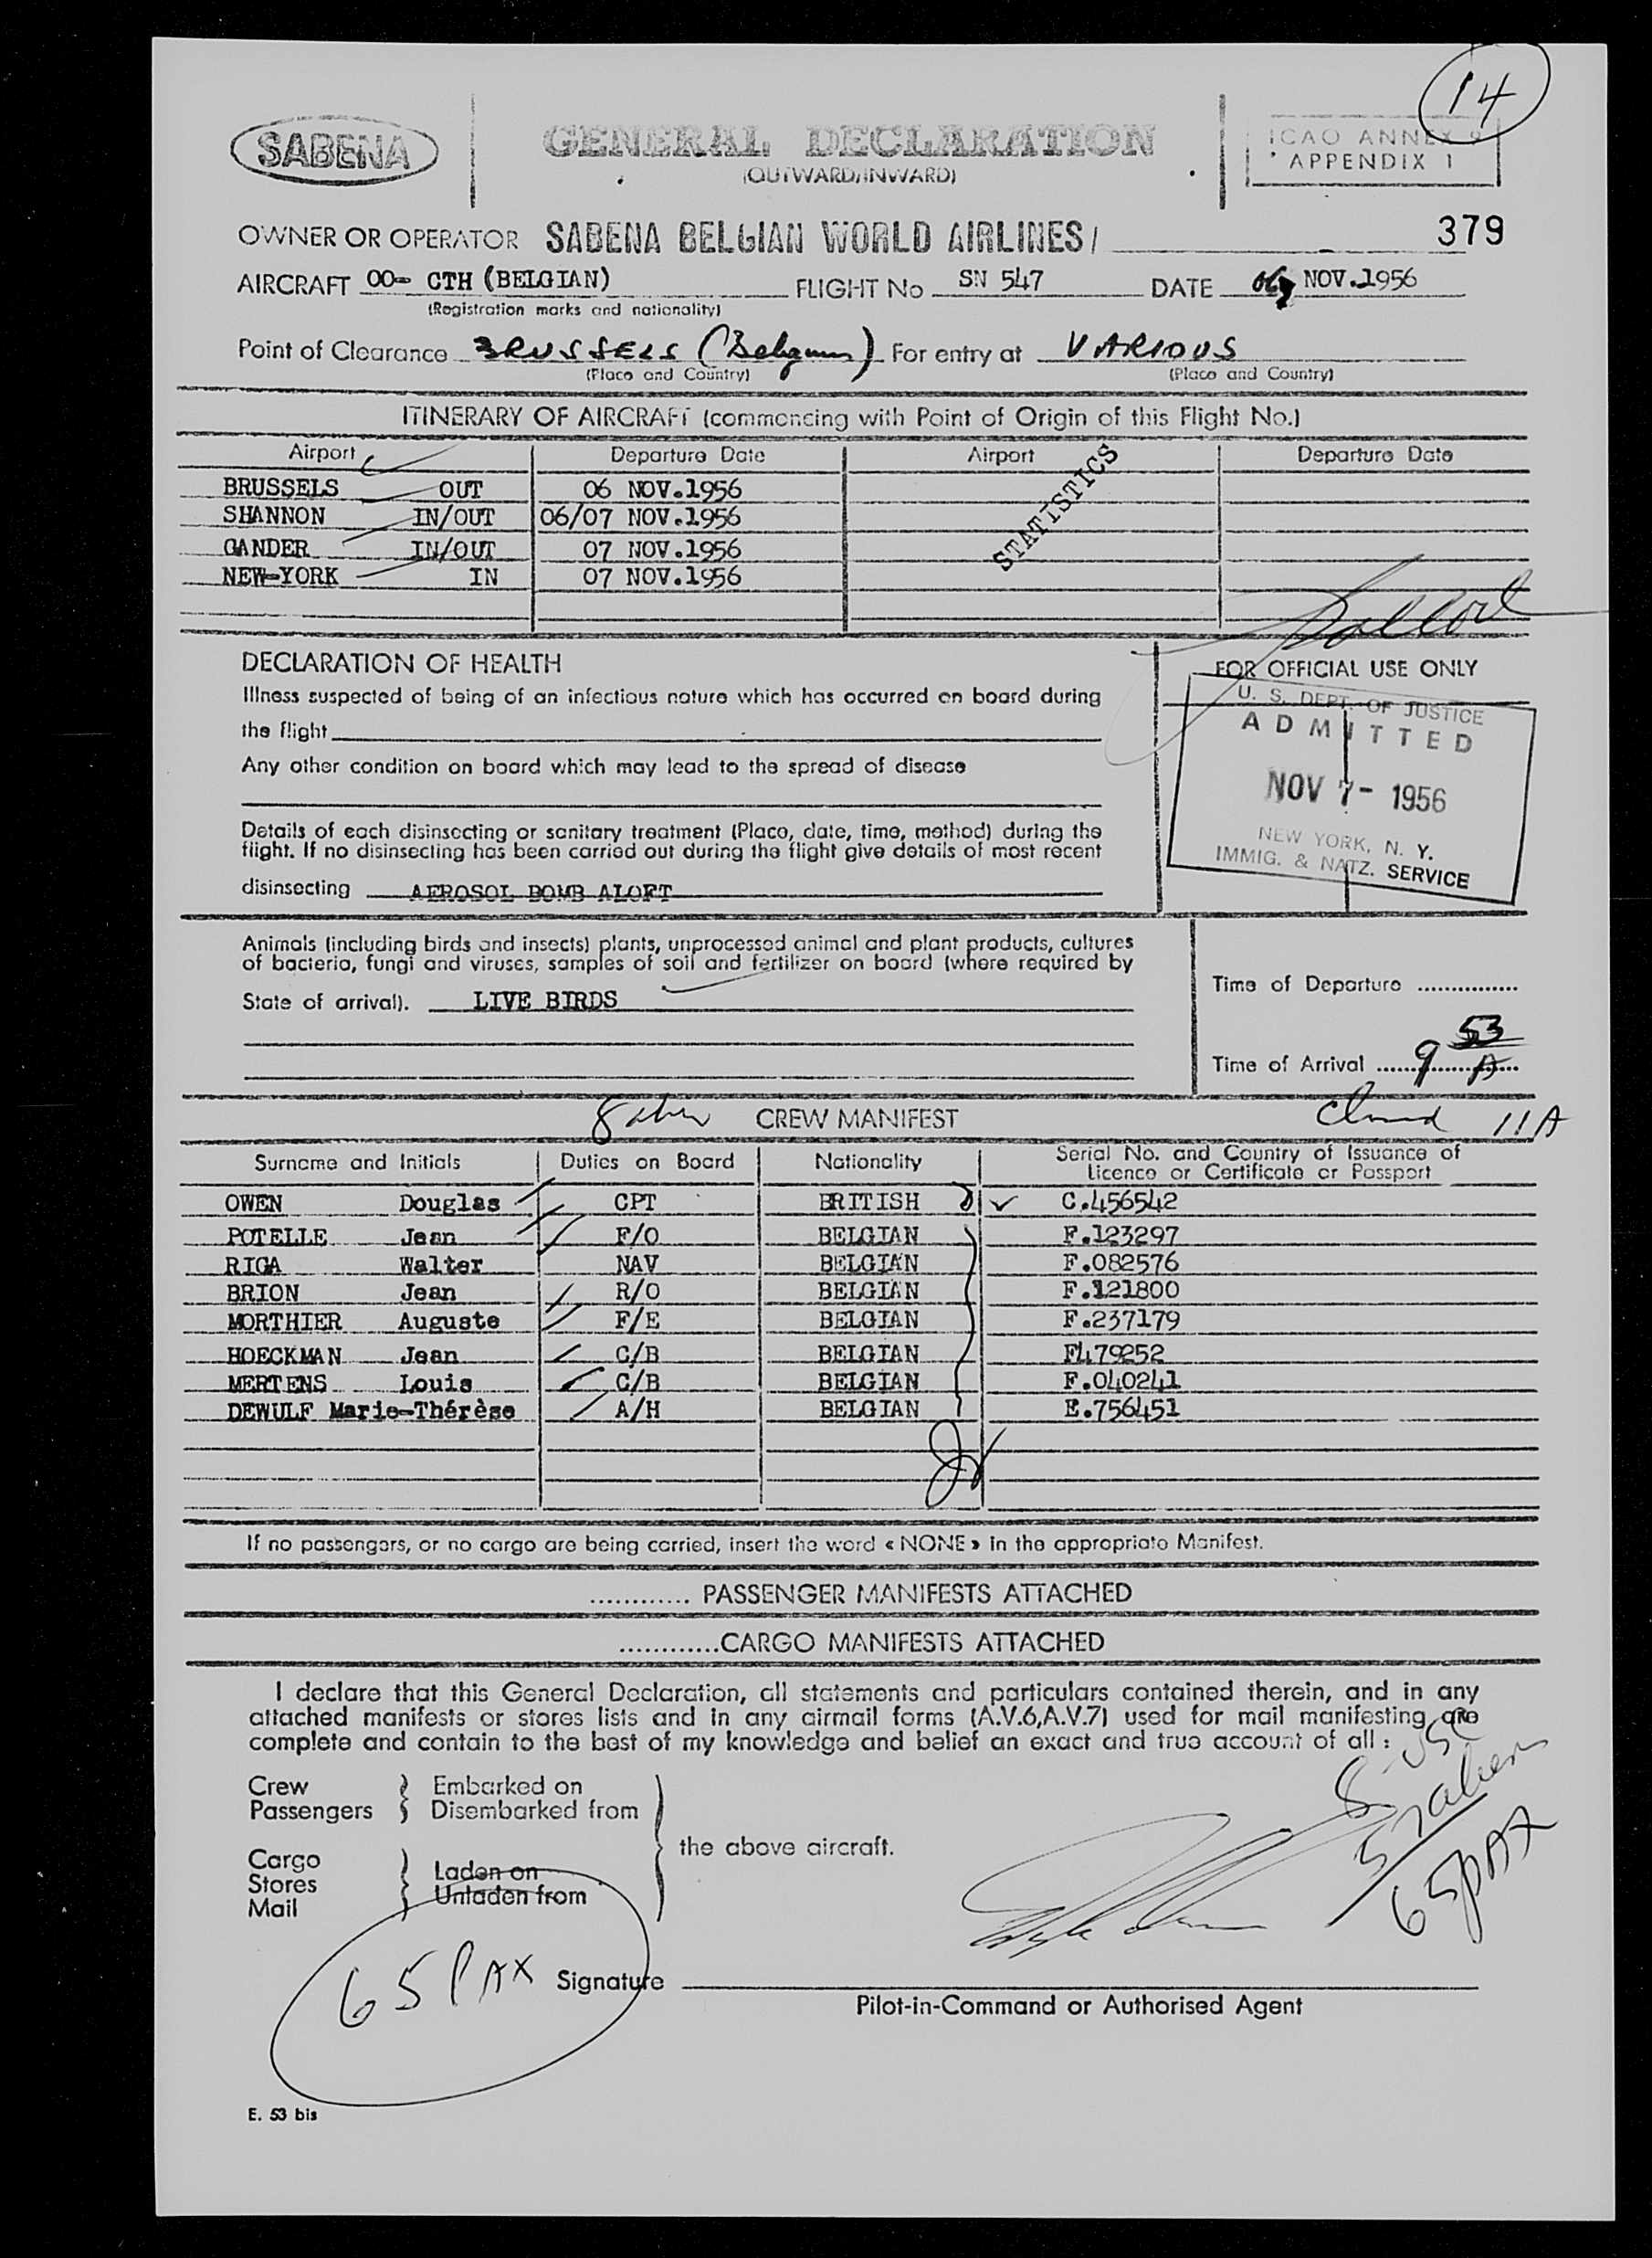 14
SABENA
GENERAL DECLARATION
(OUTWARD/INWARD)
ICAO ANNEX 9
APPENDIX 1
379
OWNER OR OPERATOR SABENA BELGIAN WORLD AIRLINES/
AIRCRAFT OO- CTH (BELGIAN) FLIGHT No SN 547 DATE 06 NOV.1956
(Registration marks and nationality)
Point of Clearance BRUSSELS (Belgium) For entry at VARIOUS
(Place and Country) (Place and Country)
ITINERARY OF AIRCRAFT (commencing with Point of Origin of this Flight No.)
Airport Departure Date Airport Departure Date
BRUSSELS OUT 06 NOV.1956
SHANNON IN/OUT 06/07 NOV.1956
GANDER IN/OUT 07 NOV.1956
NEW-YORK IN 07 NOV.1956
STATISTICS
DECLARATION OF HEALTH
Illness suspected of being of an infectious nature which has occurred on board during
the flight
Any other condition on board which may lead to the spread of disease
Details of each disinsecting or sanitary treatment (Place, date, time, method) during the
flight. If no disinsecting has been carried out during the flight give details of most recent
disinsecting AEROSOL BOMB ALOFT
FOR OFFICIAL USE ONLY
U. S. DEPT. OF JUSTICE
ADMITTED
NOV 7- 1956
NEW YORK, N. Y.
IMMIG. & NATZ. SERVICE
Animals (including birds and insects) plants, unprocessed animal and plant products, cultures
of bacteria, fungi and viruses, samples of soil and fertilizer on board (where required by
State of arrival). LIVE BIRDS
Time of Departure
Time of Arrival 9 53 A
CREW MANIFEST
11A
Surname and Initials Duties on Board Nationality Serial No. and Country of Issuance of
Licence or Certificate or Passport
OWEN Douglas CPT BRITISH C.456542
POTELLE Jean F/O BELGIAN F.123297
RIGA Walter NAV BELGIAN F.082576
BRION Jean R/O BELGIAN F.121800
MORTHIER Auguste F/E BELGIAN F.237179
HOECKMAN Jean C/B BELGIAN F479252
MERTENS Louis C/B BELGIAN F.040241
DEWULF Marie-Thérèse A/H BELGIAN E.756451
If no passengers, or no cargo are being carried, insert the word « NONE » in the appropriate Manifest.
............ PASSENGER MANIFESTS ATTACHED
............CARGO MANIFESTS ATTACHED
I declare that this General Declaration, all statements and particulars contained therein, and in any
attached manifests or stores lists and in any airmail forms (A.V.6,A.V.7) used for mail manifesting are
complete and contain to the best of my knowledge and belief an exact and true account of all :
Crew Embarked on
Passengers Disembarked from
the above aircraft.
Cargo
Stores Laden on
Mail Unladen from
8 USC
57 alien
65 PAX
65 PAX
Signature
Pilot-in-Command or Authorised Agent
E. 53 bis